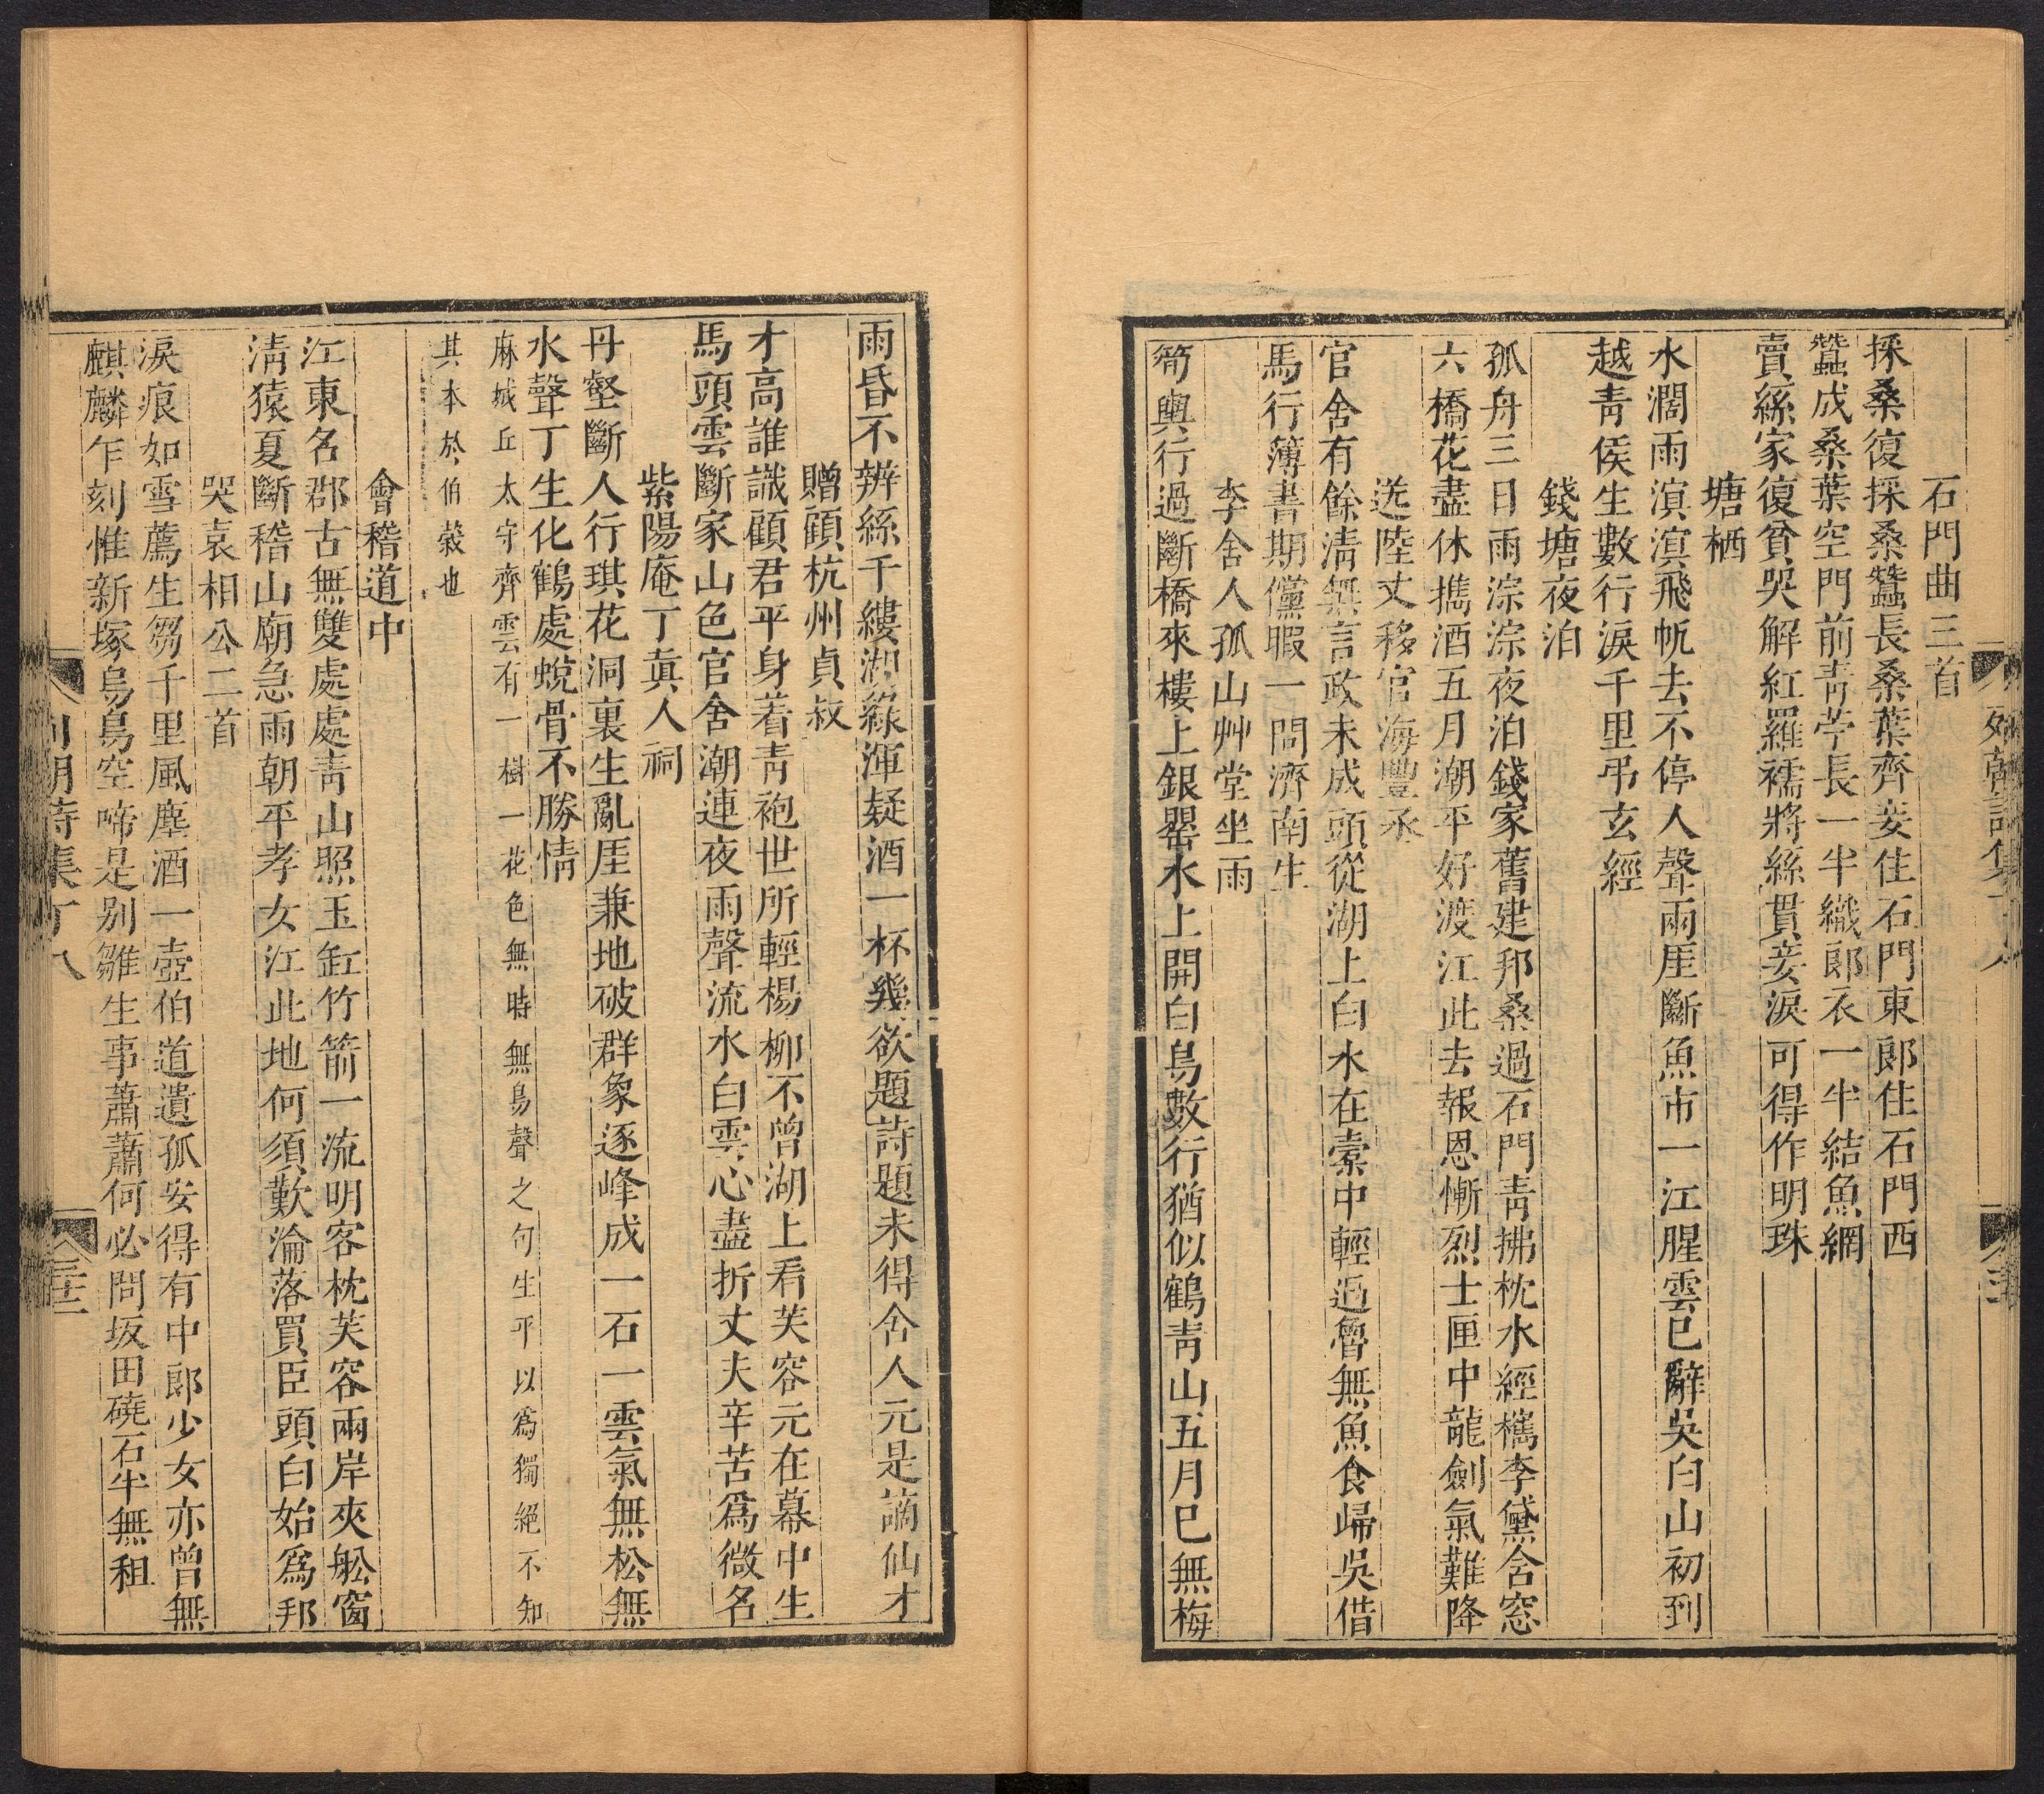 石門曲三首
採桑復採桑蠶長桑葉齊妾住石門東郎住石門西
蠶成桑葉空門前靑苧長一半織郎衣一半結魚網
賣絲家復貧哭解紅羅襦將絲貫妾淚可得作明珠
塘栖
水濶雨溟溟飛帆去不停人聲兩厓斷魚市一江腥雲已辭吳白山初到
越靑侯生數行淚千里弔玄經
錢塘夜泊
孤舟三日雨淙淙夜泊錢家舊建邦桑過石門靑拂枕水經檇李黛含窓
六橋花盡休攜酒五月潮平好渡江此去報恩慚烈士匣中龍劍氣難降
送陸丈移官海豐丞
官舍有餘淸無言政未成頭從湖上白水在橐中輕過魯無魚食歸吳借
馬行簿書期儻暇一問濟南生
李舍人孤山艸堂坐雨
笋輿行過斷橋來樓上銀罌水上開白鳥數行猶似鶴靑山五月巳無梅
雨昏不辨絲千縷湖綠渾疑酒一杯幾欲題詩題未得舍人元是謫仙才
贈顧杭州貞叔
才高誰識顧君平身着靑袍世所輕楊柳不曾湖上看芙容元在幕中生
馬頭雲斷家山色官舍潮連夜雨聲流水白雲心盡折丈夫辛苦爲微名
紫陽庵丁眞人祠
丹壑斷人行琪花洞裏生亂厓兼地破群象逐峰成一石一雲氣無松無
水聲丁生化鶴處蛻骨不勝情
麻城丘太守齊雲有一樹一花色無時無鳥聲之句生平以爲獨絕不知
其本於伯穀也
會稽道中
江東名郡古無雙處處靑山照玉缸竹箭一流明客枕芙容兩岸夾舩窗
淸猿夏斷稽山廟急雨朝平孝女江此地何須歎淪落買臣頭白始爲邦
哭袁相公二首
淚痕如雪薦生芻千里風塵酒一壺伯道遺孤安得有中郎少女亦曾無
麒麟乍刻惟新塚烏鳥空啼是別雛生事蕭蕭何必問坂田磽石半無租